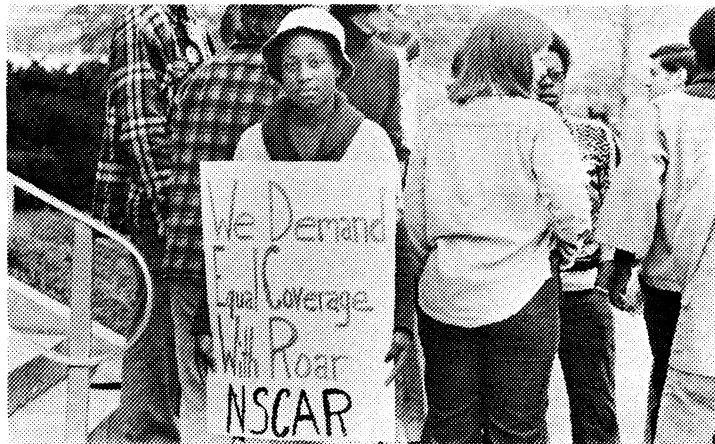 We Demand
Equal Coverage
With Roar
NSCAR